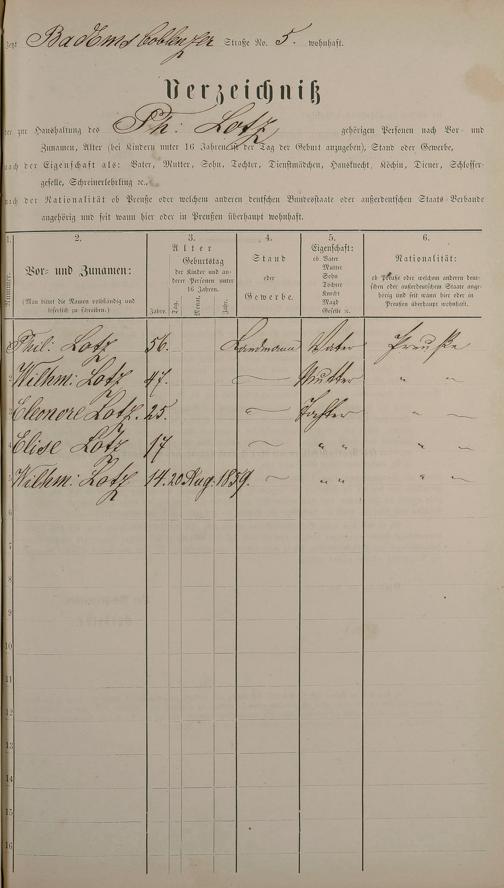 Jetzt Bad Ems Coblenzer Straße No. 5. wohnhaft.
Verzeichniß
der zur Haushaltung des Ph: Lotz gehörigen Personen nach Vor- und
Zunamen, Alter (bei Kindern unter 16 Jahren ist der Tag der Geburt anzugeben), Stand oder Gewerbe,
nach der Eigenschaft als: Vater, Mutter, Sohn, Tochter, Dienstmädchen, Hausknecht, Köchin, Diener, Schlosser-
geselle, Schreinerlehrling ꝛc.,
nach der Nationalität ob Preuße oder welchem anderen deutschen Bundesstaate oder außerdeutschen Staats-Verbande
angehörig und seit wann hier oder in Preußen überhaupt wohnhaft.
1. 2. 3. 4. 5. 6.
Nummer.
Vor- und Zunamen:
(Man bittet die Namen vollständig und
leserlich zu schreiben.)
Alter
Geburtstag
der Kinder und an-
derer Personen unter
16 Jahren.
Jahre. Tag. Monat. Jahr.
Stand
oder
Gewerbe.
Eigenschaft:
ob Vater
Mutter
Sohn
Tochter
Knecht
Magd
Geselle ꝛc.
Nationalität:
ob Preuße oder welchem anderen deut-
schen oder außerdeutschen Staate ange-
hörig und seit wann hier oder in
Preußen überhaupt wohnhaft.
Phil: Lotz 56. Landmann Vater Preuße
2 Wilhm: Lotz 47. — Mutter " "
3 Eleonore Lotz. 25. — Tochter " "
4 Elise Lotz 17 — " " " "
5 Wilhm: Lotz 14. 20 Aug. 1859. — " " " "
6
7
8
9
10
11
12
13
14
15
16